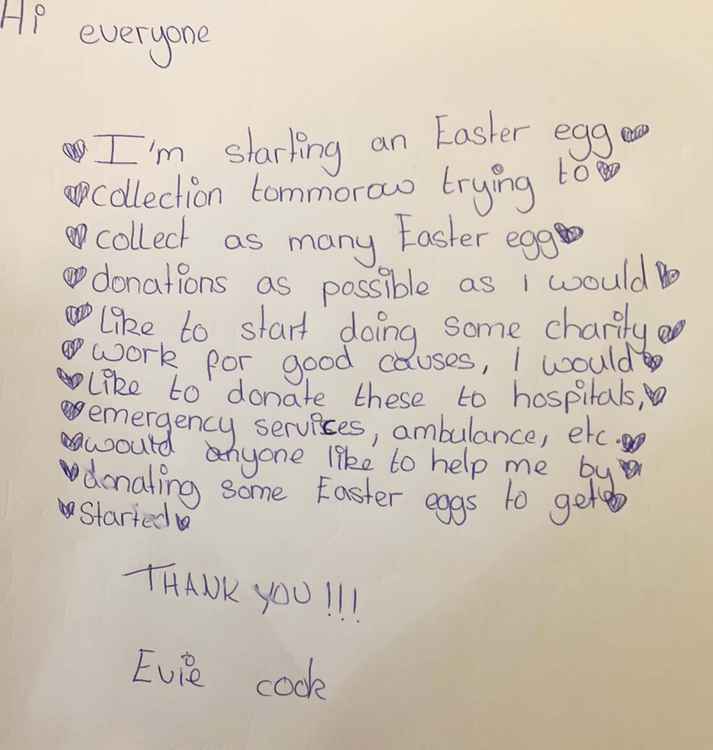 Hi everyone
I'm starting an Easter egg
collection tommorow trying to
collect as many Easter egg
donations as possible as i would
Like to start doing some charity
work for good causes, I would
Like to donate these to hospitals,
emergency services, ambulance, etc.
would anyone like to help me by
donating some Easter eggs to get
Started
THANK YOU !!!
Evie cook